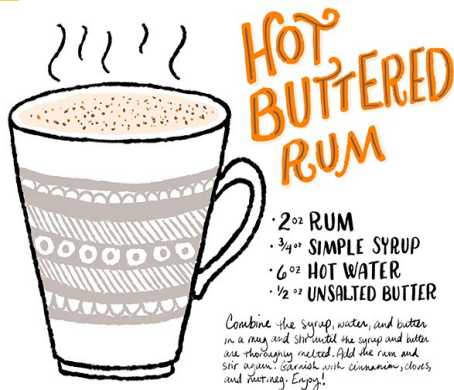 HOT
BUTTERED
RUM
· 2 oz RUM
· 3/4 oz SIMPLE SYRUP
· 6 oz HOT WATER
· 1/2 oz UNSALTED BUTTER
Combine the syrup, water, and butter
in a mug and stir until the syrup and butter
are thoroughly melted. Add the rum and
stir again. Garnish with cinnamon, cloves,
and nutmeg. Enjoy!